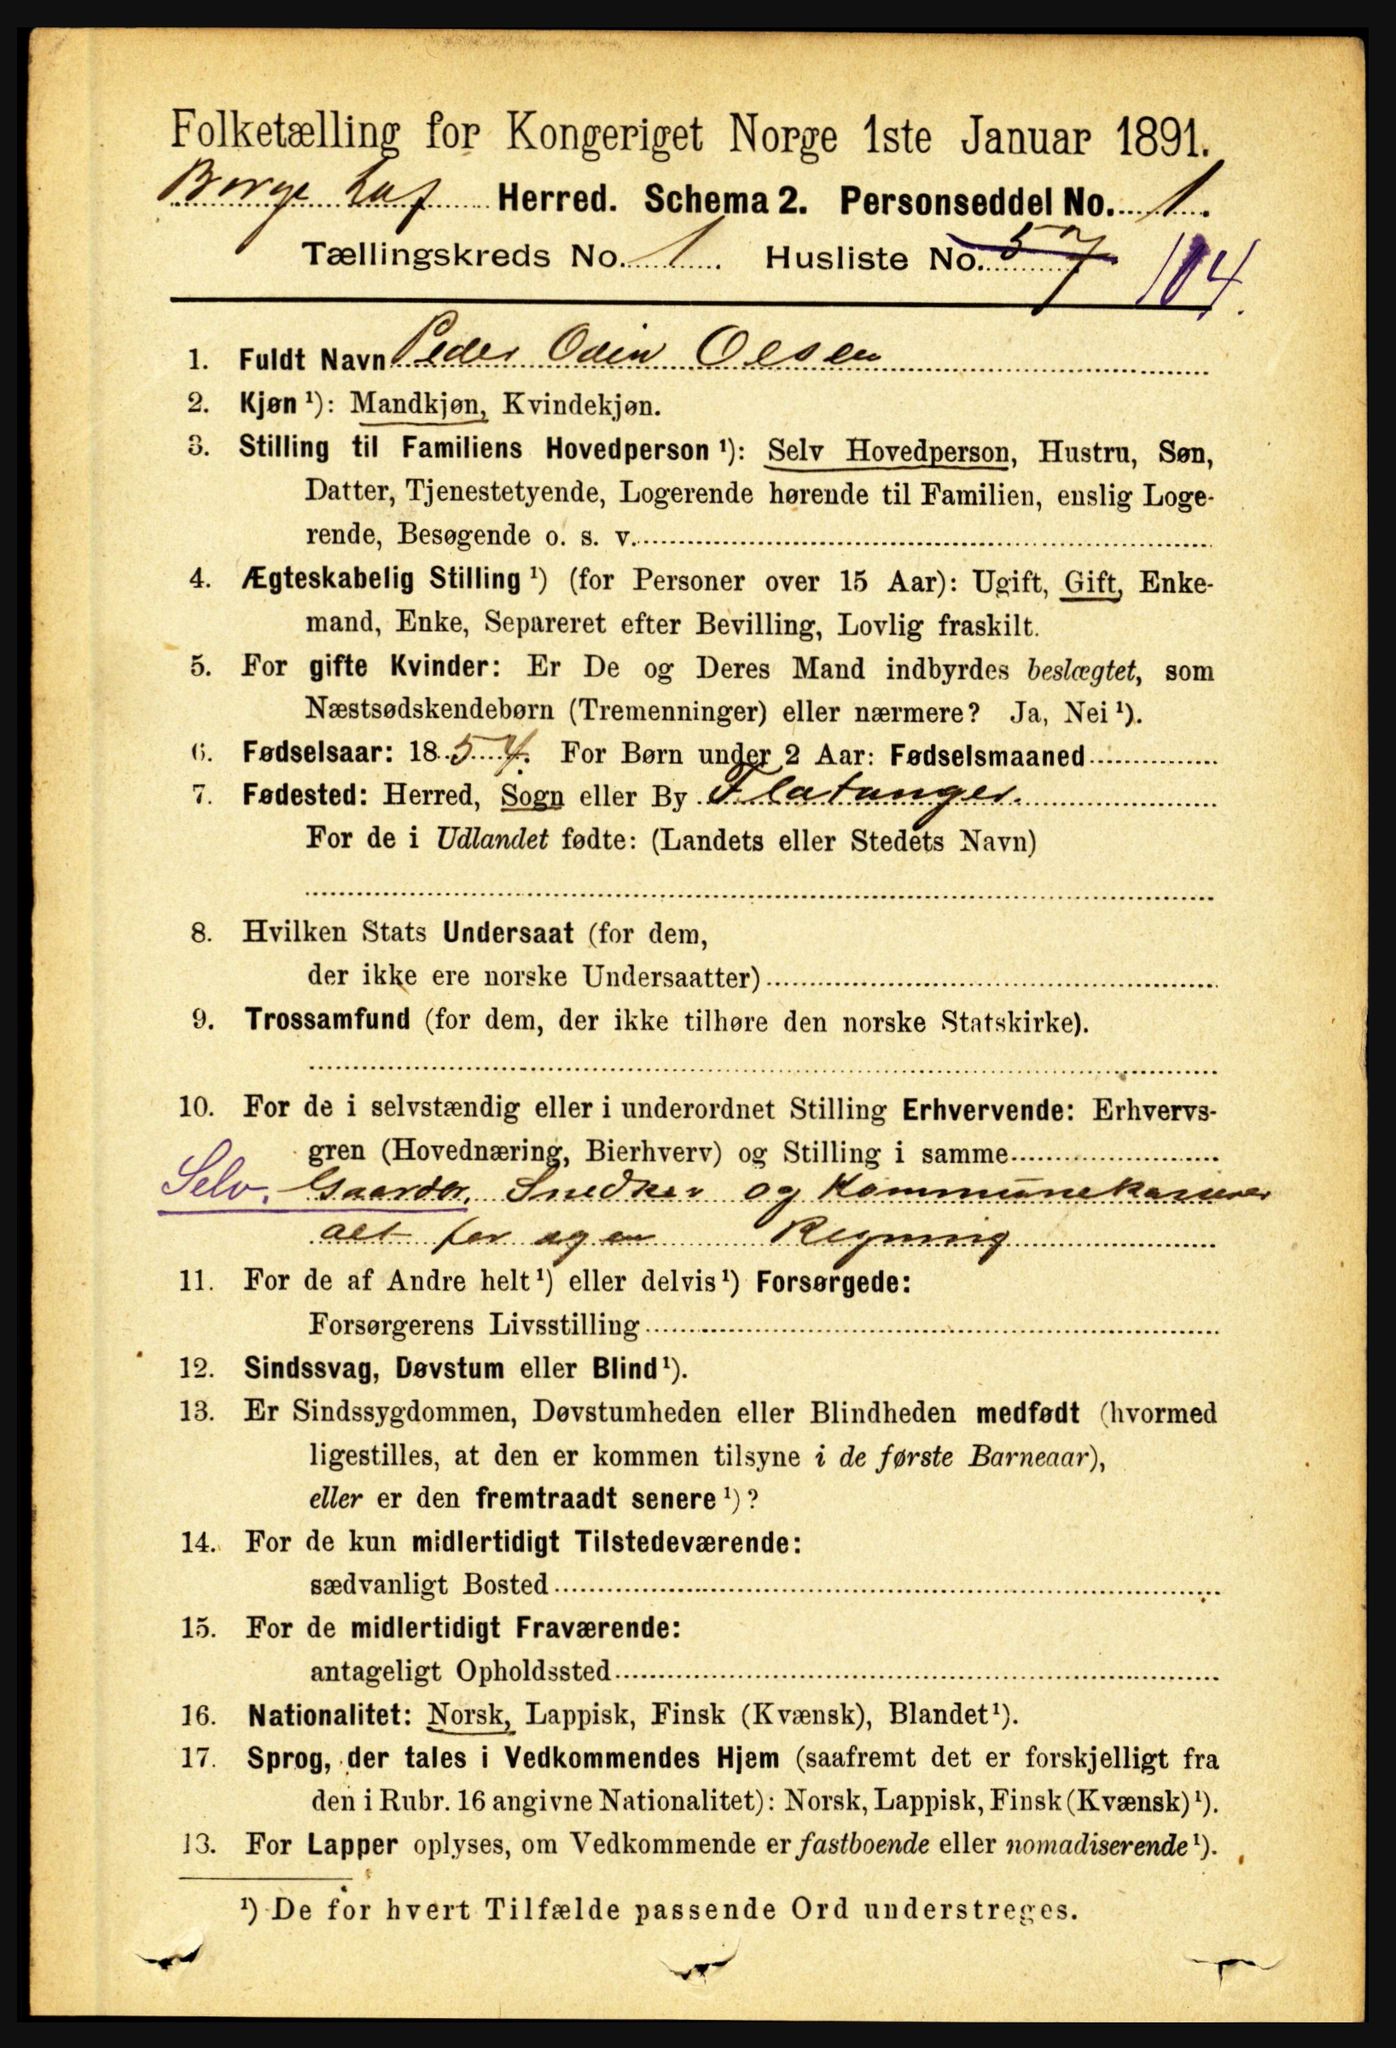 Folketælling for Kongeriget Norge 1ste Januar 1891.
Borge Lof Herred. Schema 2. Personseddel No. 1.
Tællingskreds No. 1. Husliste No. 57 104.
1. Fuldt Navn Peder Odin Olsen
2. Kjøn ¹): Mandkjøn, Kvindekjøn.
3. Stilling til Familiens Hovedperson ¹): Selv Hovedperson, Hustru, Søn,
Datter, Tjenestetyende, Logerende hørende til Familien, enslig Loge-
rende, Besøgende o. s. v.
4. Ægteskabelig Stilling ¹) (for Personer over 15 Aar): Ugift, Gift, Enke-
mand, Enke, Separeret efter Bevilling, Lovlig fraskilt.
5. For gifte Kvinder: Er De og Deres Mand indbyrdes beslægtet, som
Næstsødskendebørn (Tremenninger) eller nærmere? Ja, Nei ¹).
6. Fødselsaar: 1857. For Børn under 2 Aar: Fødselsmaaned
7. Fødested: Herred, Sogn eller By Flatanger.
For de i Udlandet fødte: (Landets eller Stedets Navn)
8. Hvilken Stats Undersaat (for dem,
der ikke ere norske Undersaatter)
9. Trossamfund (for dem, der ikke tilhøre den norske Statskirke).
10. For de i selvstændig eller i underordnet Stilling Erhvervende: Erhvervs-
gren (Hovednæring, Bierhverv) og Stilling i samme
Selv. Gaardbr. Snedker og Kommunekasserer
alt for egen Regning
11. For de af Andre helt ¹) eller delvis ¹) Forsørgede:
Forsørgerens Livsstilling
12. Sindssvag, Døvstum eller Blind ¹).
13. Er Sindssygdommen, Døvstumheden eller Blindheden medfødt (hvormed
ligestilles, at den er kommen tilsyne i de første Barneaar),
eller er den fremtraadt senere ¹)?
14. For de kun midlertidigt Tilstedeværende:
sædvanligt Bosted
15. For de midlertidigt Fraværende:
antageligt Opholdssted
16. Nationalitet: Norsk, Lappisk, Finsk (Kvænsk), Blandet ¹).
17. Sprog, der tales i Vedkommendes Hjem (saafremt det er forskjelligt fra
den i Rubr. 16 angivne Nationalitet): Norsk, Lappisk, Finsk (Kvænsk) ¹).
13. For Lapper oplyses, om Vedkommende er fastboende eller nomadiserende ¹).
¹) De for hvert Tilfælde passende Ord understreges.